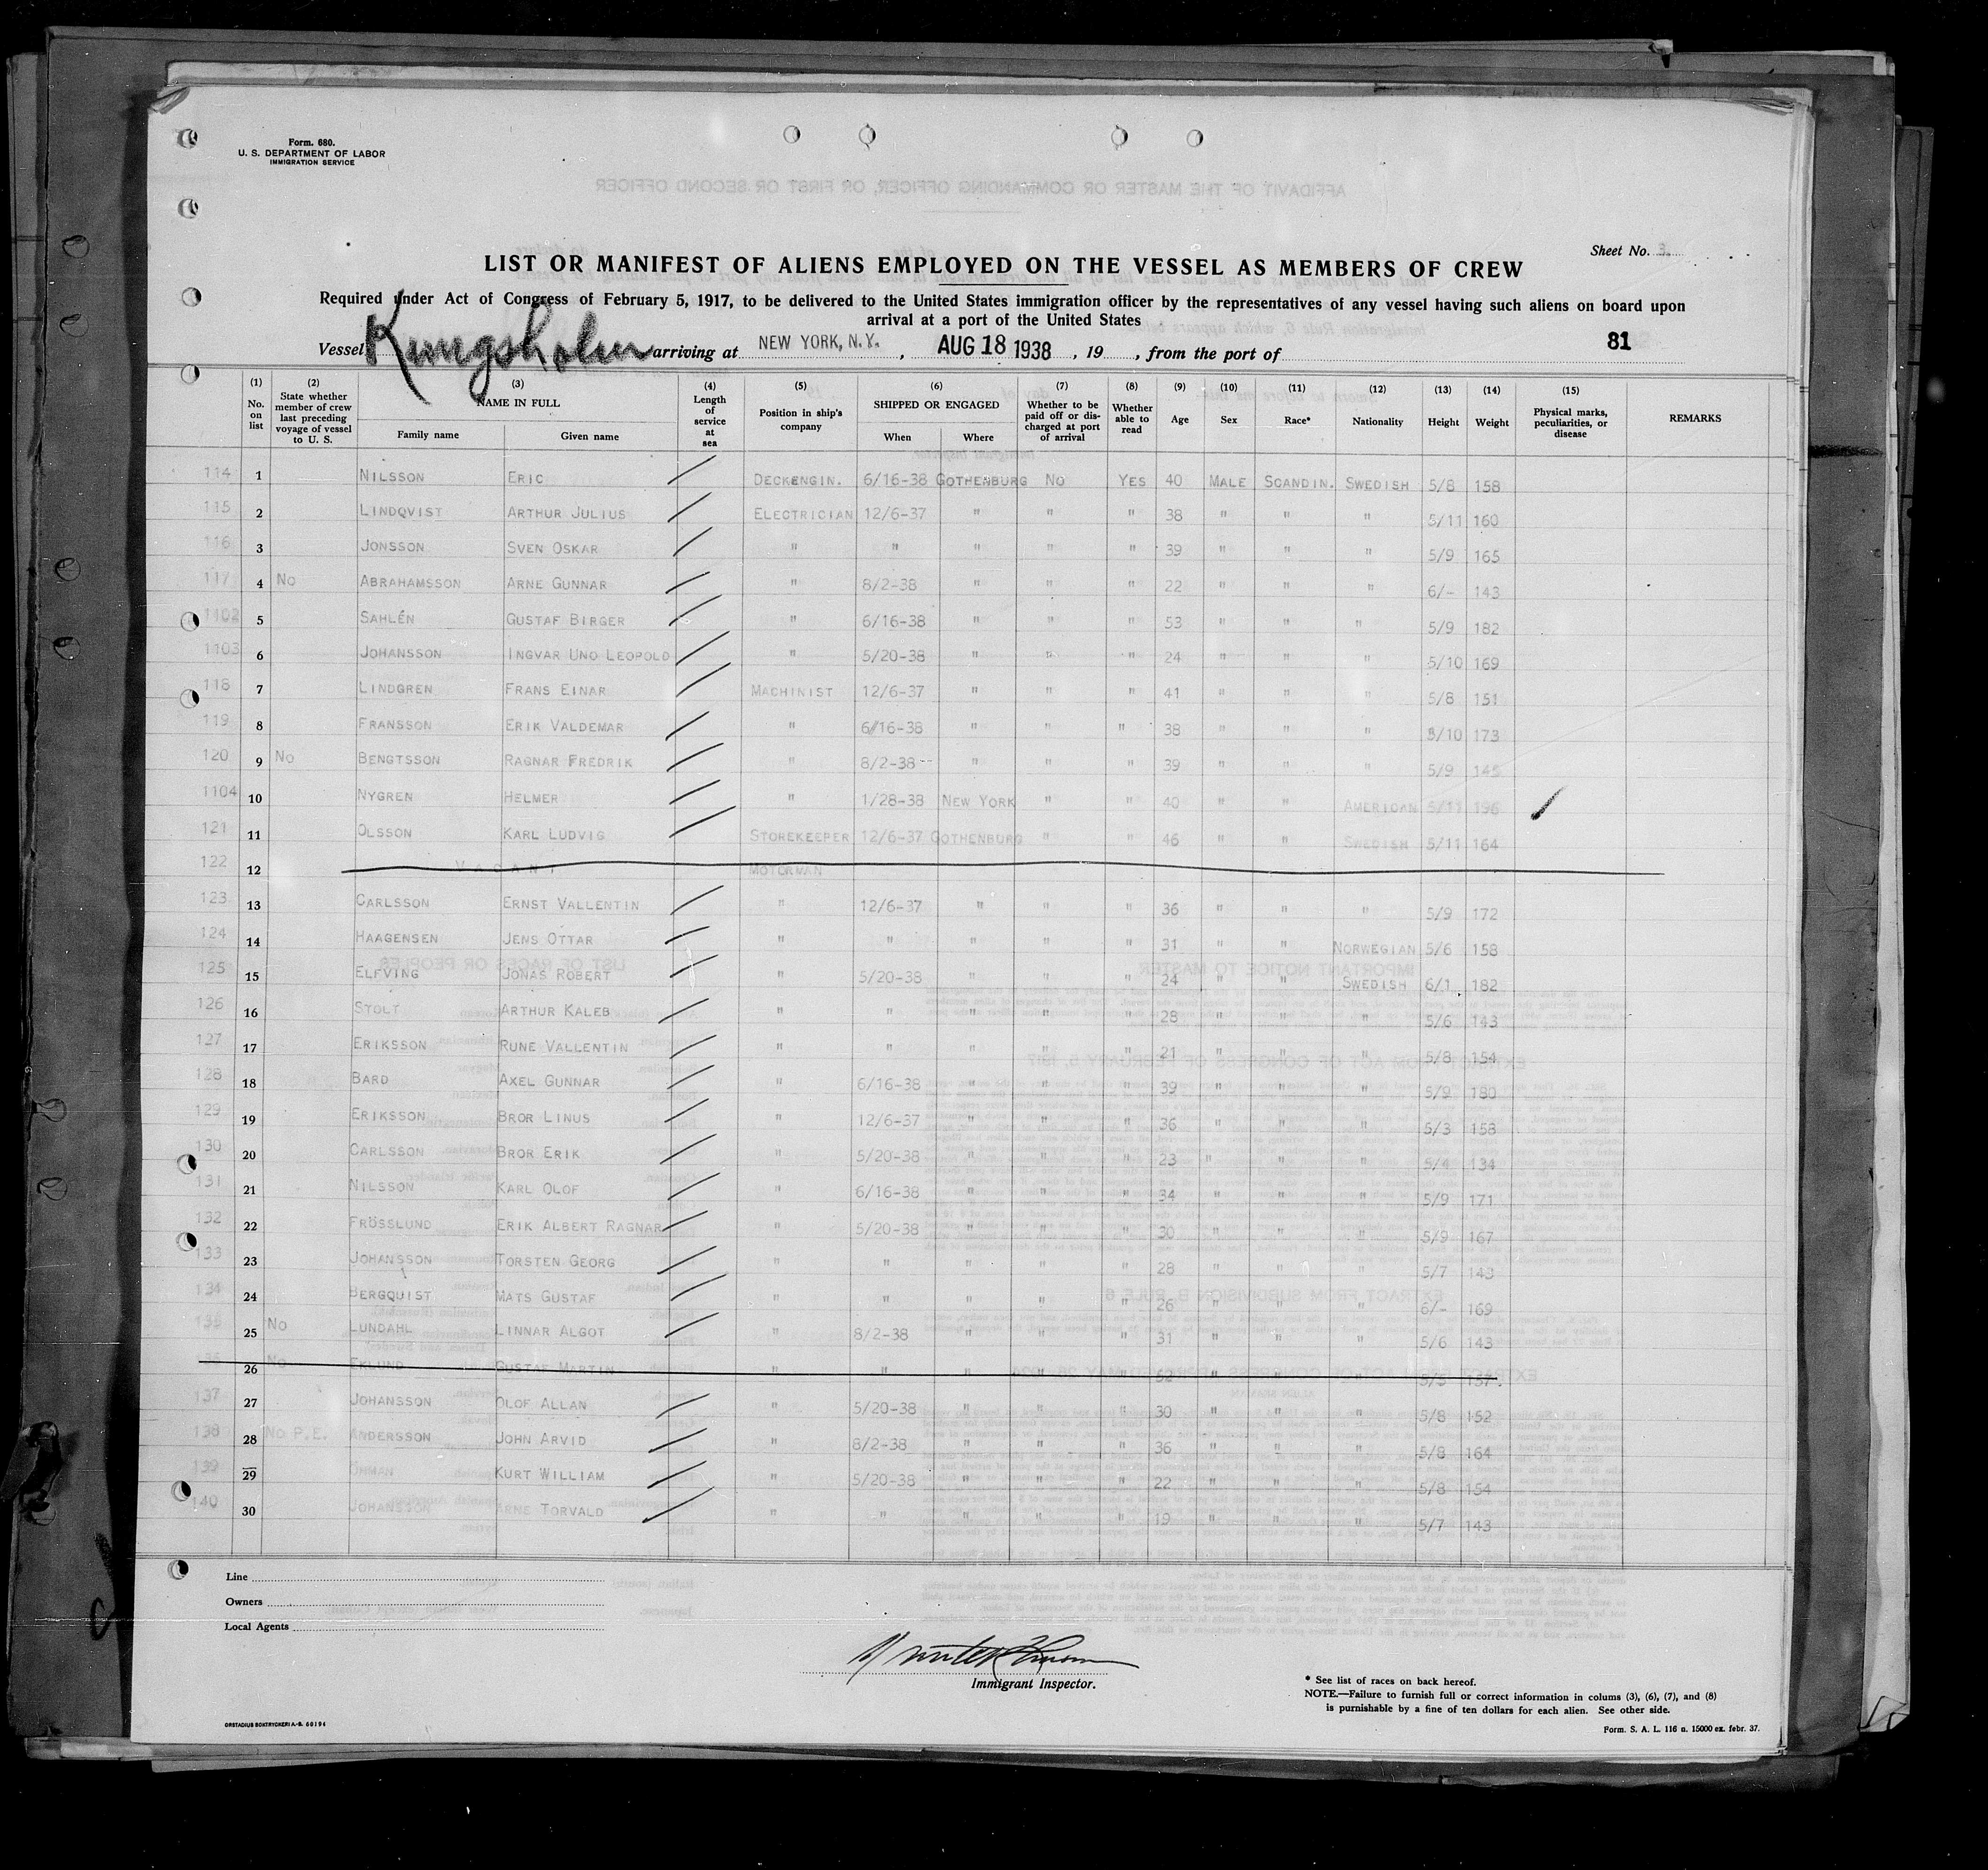 Form. 680.
U. S. DEPARTMENT OF LABOR
IMMIGRATION SERVICE
Sheet No. 3.
LIST OR MANIFEST OF ALIENS EMPLOYED ON THE VESSEL AS MEMBERS OF CREW
Required under Act of Congress of February 5, 1917, to be delivered to the United States immigration officer by the representatives of any vessel having such aliens on board upon
arrival at a port of the United States
Vessel Kungsholm arriving at NEW YORK, N.Y., AUG 18 1938, 19, from the port of 81
(1) No. on list (2) State whether member of crew last preceding voyage of vessel to U. S. (3) NAME IN FULL Family name Given name (4) Length of service at sea (5) Position in ship's company (6) SHIPPED OR ENGAGED When Where (7) Whether to be paid off or discharged at port of arrival (8) Whether able to read (9) Age (10) Sex (11) Race* (12) Nationality (13) Height (14) Weight (15) Physical marks, peculiarities, or disease REMARKS
114 1 NILSSON ERIC DECKENGIN. 6/16-38 GOTHENBURG NO YES 40 MALE SCANDIN. SWEDISH 5/8 158
115 2 LINDQVIST ARTHUR JULIUS ELECTRICIAN 12/6-37 " " " 38 " " " 5/11 160
116 3 JONSSON SVEN OSKAR " " " " " 39 " " " 5/9 165
117 4 NO ABRAHAMSSON ARNE GUNNAR " 8/2-38 " " " 22 " " " 6/- 143
1102 5 SAHLÉN GUSTAF BIRGER " 6/16-38 " " " 53 " " " 5/9 182
1103 6 JOHANSSON INGVAR UNO LEOPOLD " 5/20-38 " " " 24 " " " 5/10 169
118 7 LINDGREN FRANS EINAR MACHINIST 12/6-37 " " " 41 " " " 5/8 151
119 8 FRANSSON ERIK VALDEMAR " 6/16-38 " " " 38 " " " 5/10 173
120 9 NO BENGTSSON RAGNAR FREDRIK " 8/2-38 " " " 39 " " " 5/9 145
1104 10 NYGREN HELMER " 1/28-38 NEW YORK " " 40 " " AMERICAN 5/11 196
121 11 OLSSON KARL LUDVIG STOREKEEPER 12/6-37 GOTHENBURG " " 46 " " SWEDISH 5/11 164
122 12 VACANT MOTORMAN
123 13 CARLSSON ERNST VALLENTIN " 12/6-37 " " " 36 " " " 5/9 172
124 14 HAAGENSEN JENS OTTAR " " " " " 31 " " NORWEGIAN 5/6 158
125 15 ELFVING JONAS ROBERT " 5/20-38 " " " 24 " " SWEDISH 6/1 182
126 16 STOLT ARTHUR KALEB " " " " " 28 " " " 5/6 143
127 17 ERIKSSON RUNE VALLENTIN " " " " " 21 " " " 5/8 154
128 18 BARD AXEL GUNNAR " 6/16-38 " " " 39 " " " 5/9 180
129 19 ERIKSSON BROR LINUS " 12/6-37 " " " 36 " " " 5/3 158
130 20 CARLSSON BROR ERIK " 5/20-38 " " " 23 " " " 5/4 134
131 21 NILSSON KARL OLOF " 6/16-38 " " " 34 " " " 5/9 171
132 22 FRÖSSLUND ERIK ALBERT RAGNAR " 5/20-38 " " " 30 " " " 5/9 167
133 23 JOHANSSON TORSTEN GEORG " " " " " 28 " " " 5/7 143
134 24 BERGQUIST MATS GUSTAF " " " " " 26 " " " 6/- 169
135 25 NO LUNDAHL LINNAR ALGOT " 8/2-38 " " " 31 " " " 5/6 143
26 NO EKLUND GUSTAF MARTIN " " " " " 52 " " " 5/5 157
137 27 JOHANSSON OLOF ALLAN " 5/20-38 " " " 30 " " " 5/8 152
138 28 NO P.E. ANDERSSON JOHN ARVID " 8/2-38 " " " 36 " " " 5/8 164
139 29 ÖHMAN KURT WILLIAM " 5/20-38 " " " 22 " " " 5/8 154
140 30 JOHANSSON ARNE TORVALD " " " " " 19 " " " 5/7 143
Line
Owners
Local Agents
Immigrant Inspector.
* See list of races on back hereof.
NOTE.—Failure to furnish full or correct information in colums (3), (6), (7), and (8)
is punishable by a fine of ten dollars for each alien. See other side.
ORSTADIUS BOKTRYCKERI A.-B. 60194
Form. S. A. L. 116 a. 15000 ex. febr. 37.